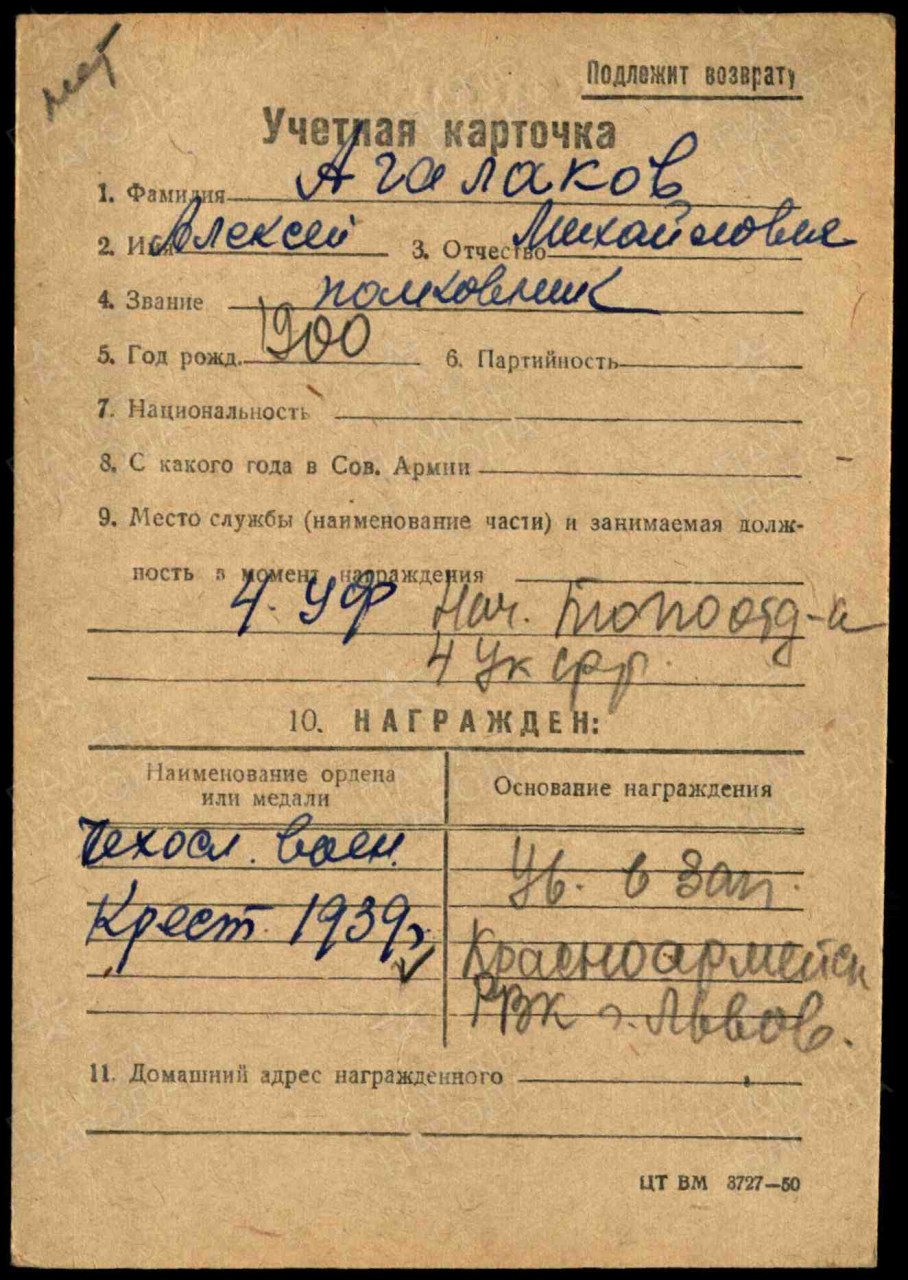 нет
Подлежит возврату
Учетная карточка
1. Фамилия Агалаков
2. Имя Алексей 3. Отчество Михайлович
4. Звание полковник
5. Год рожд. 1900 6. Партийность
7. Национальность
8. С какого года в Сов. Армии
9. Место службы (наименование части) и занимаемая долж-
ность в момент награждения
4. УФ Нач. Топоотд-а
4 Ук фр.
10. НАГРАЖДЕН:
Наименование ордена
или медали
Основание награждения
Чехосл. воен.
Крест 1939г.
Ув. в Зап.
Красноармейск
РВК г. Львов.
11. Домашний адрес награжденного
ЦТ ВМ 3727—50